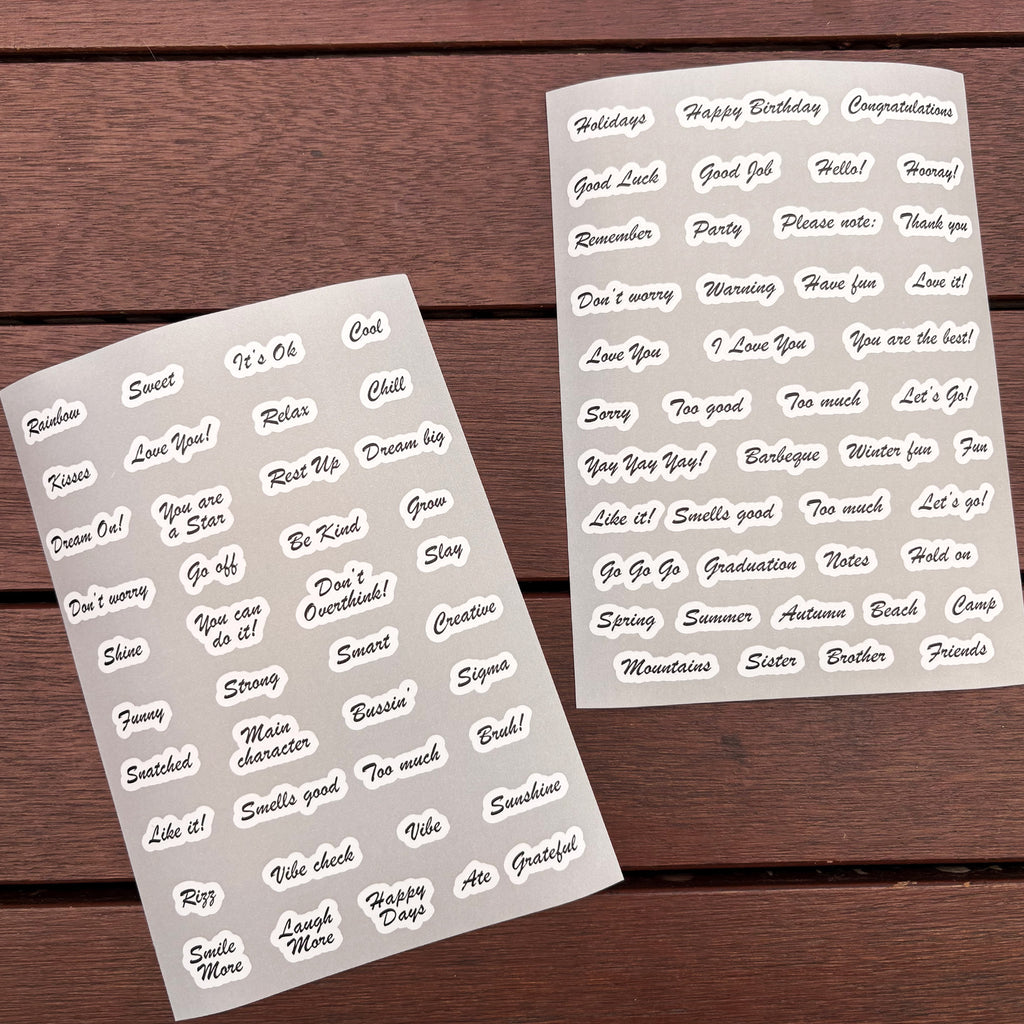 Rainbow
Sweet
It's Ok
Cool
Kisses
Love You!
Relax
Chill
Dream On!
You are
a Star
Rest Up
Dream big
Don't worry
Go off
Be Kind
Grow
Shine
You can
do it!
Don't
Overthink!
Slay
Funny
Strong
Smart
Creative
Snatched
Main
character
Bussin'
Sigma
Like it!
Smells good
Too much
Bruh!
Rizz
Vibe check
Vibe
Sunshine
Smile
More
Laugh
More
Happy
Days
Ate
Grateful
Holidays
Happy Birthday
Congratulations
Good Luck
Good Job
Hello!
Hooray!
Remember
Party
Please note:
Thank you
Don't worry
Warning
Have fun
Love it!
Love You
I Love You
You are the best!
Sorry
Too good
Too much
Let's Go!
Yay Yay Yay!
Barbeque
Winter fun
Fun
Like it!
Smells good
Too much
Let's go!
Go Go Go
Graduation
Notes
Hold on
Spring
Summer
Autumn
Beach
Camp
Mountains
Sister
Brother
Friends